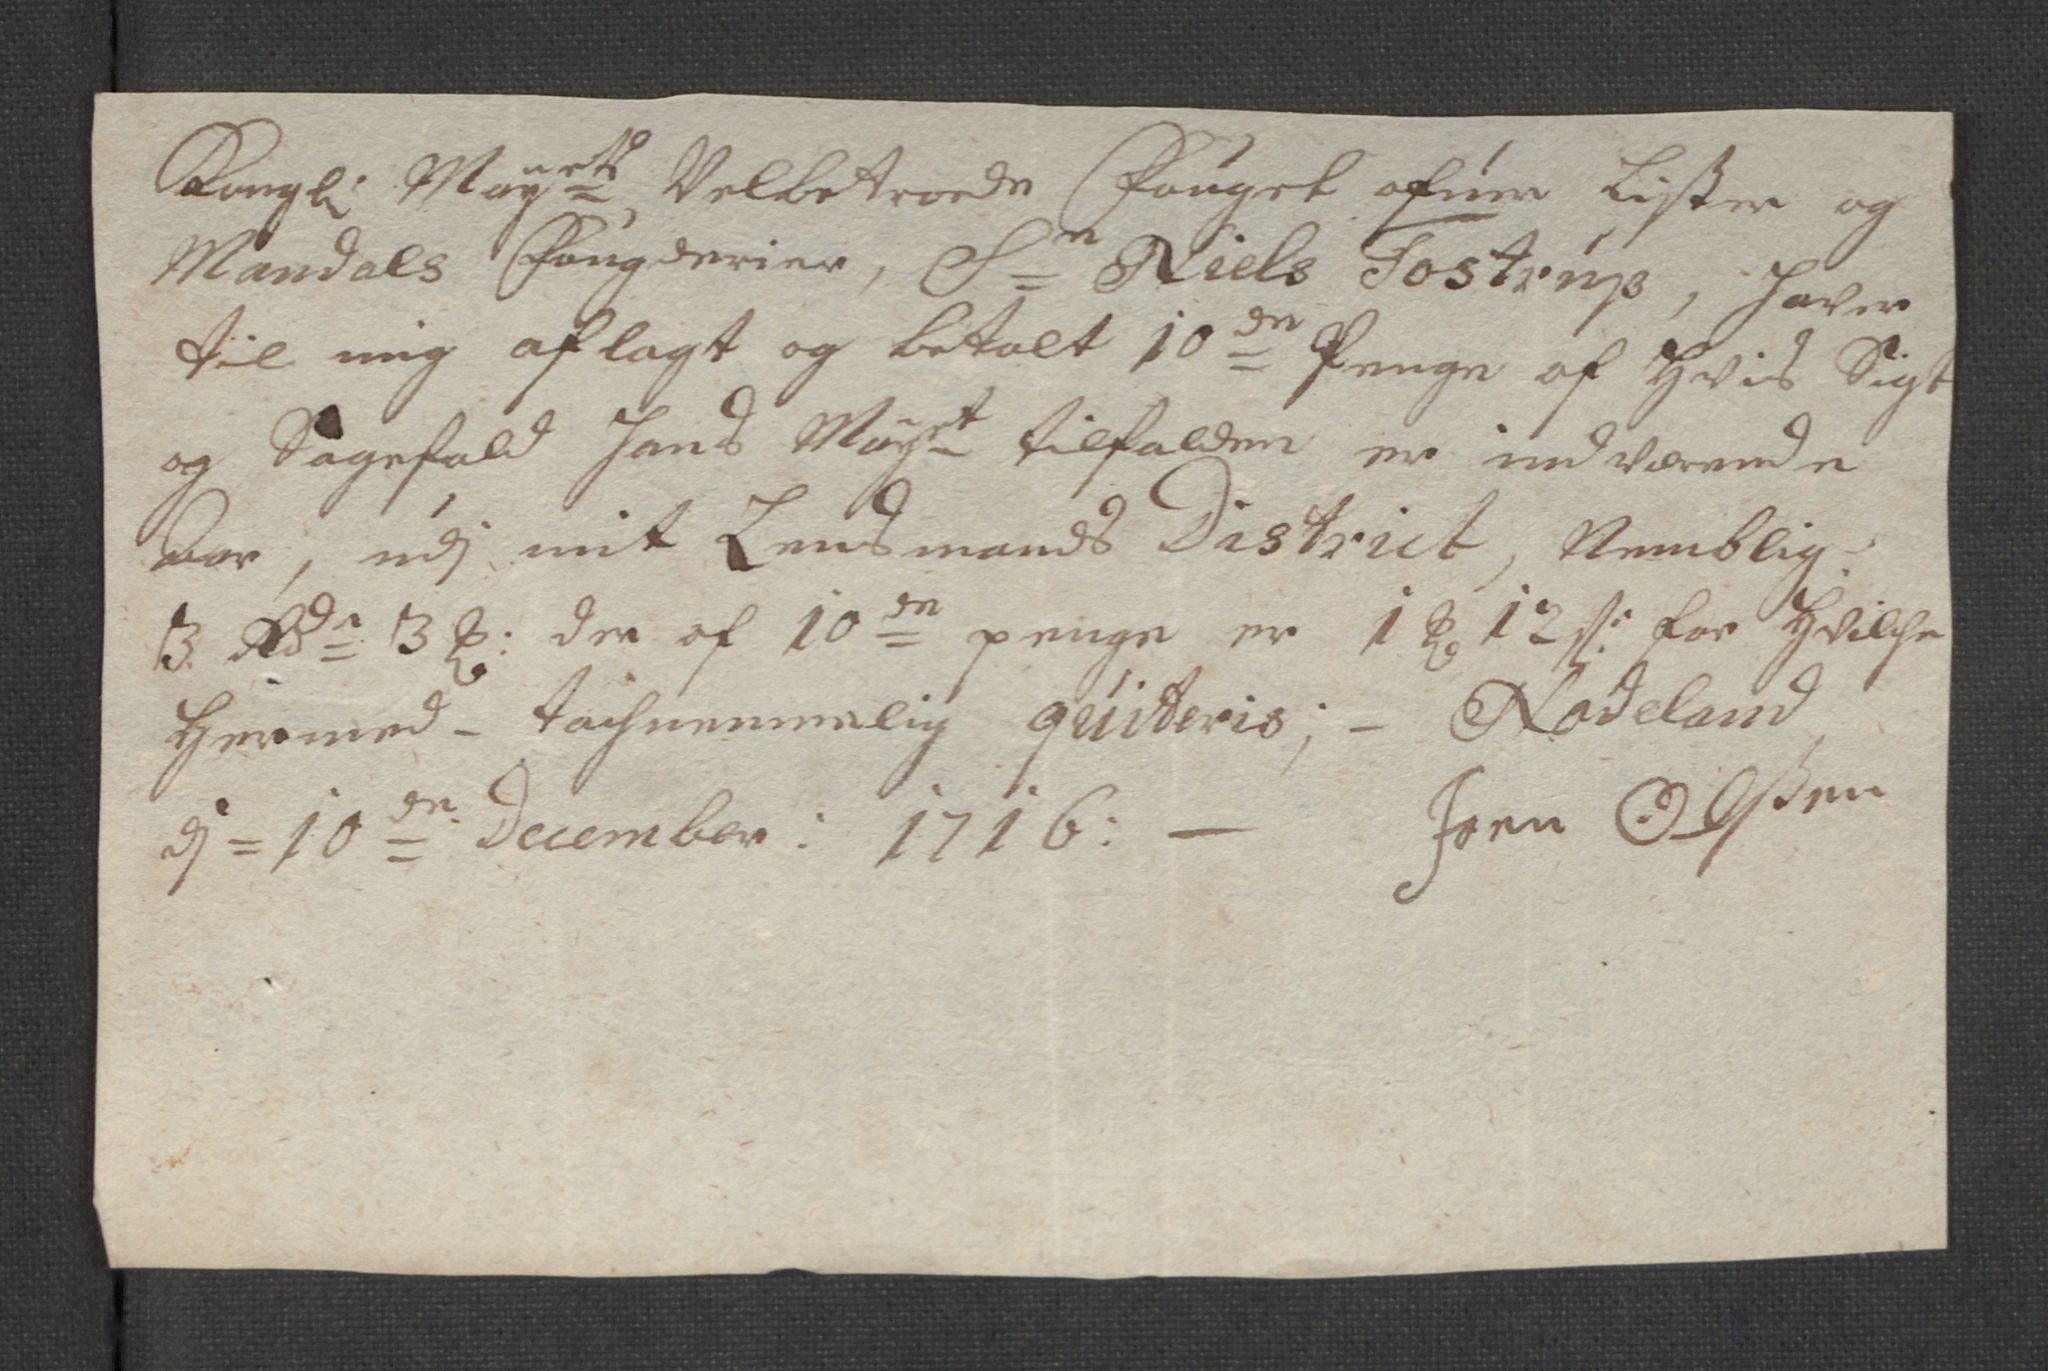 Kongl: Mayets Velbetroede Fouget ofuer Lister og
Mandals Fougderier, Sr Niels Tostrup, haver
til mig aflagt og betalt 10de Penge af Hvis Sigt
og Sagefald hans Mayet tilfalden er indværende
Aar, udj mit Lensmands District, Nemblig:
3 Rdr 3 ß: der af 10de penge er 1 ß 12 s: for Hvilche
Hermed - tachnemmelig quiteris; - Nodeland
dj = 10de December: 1716: — Joen Olßen